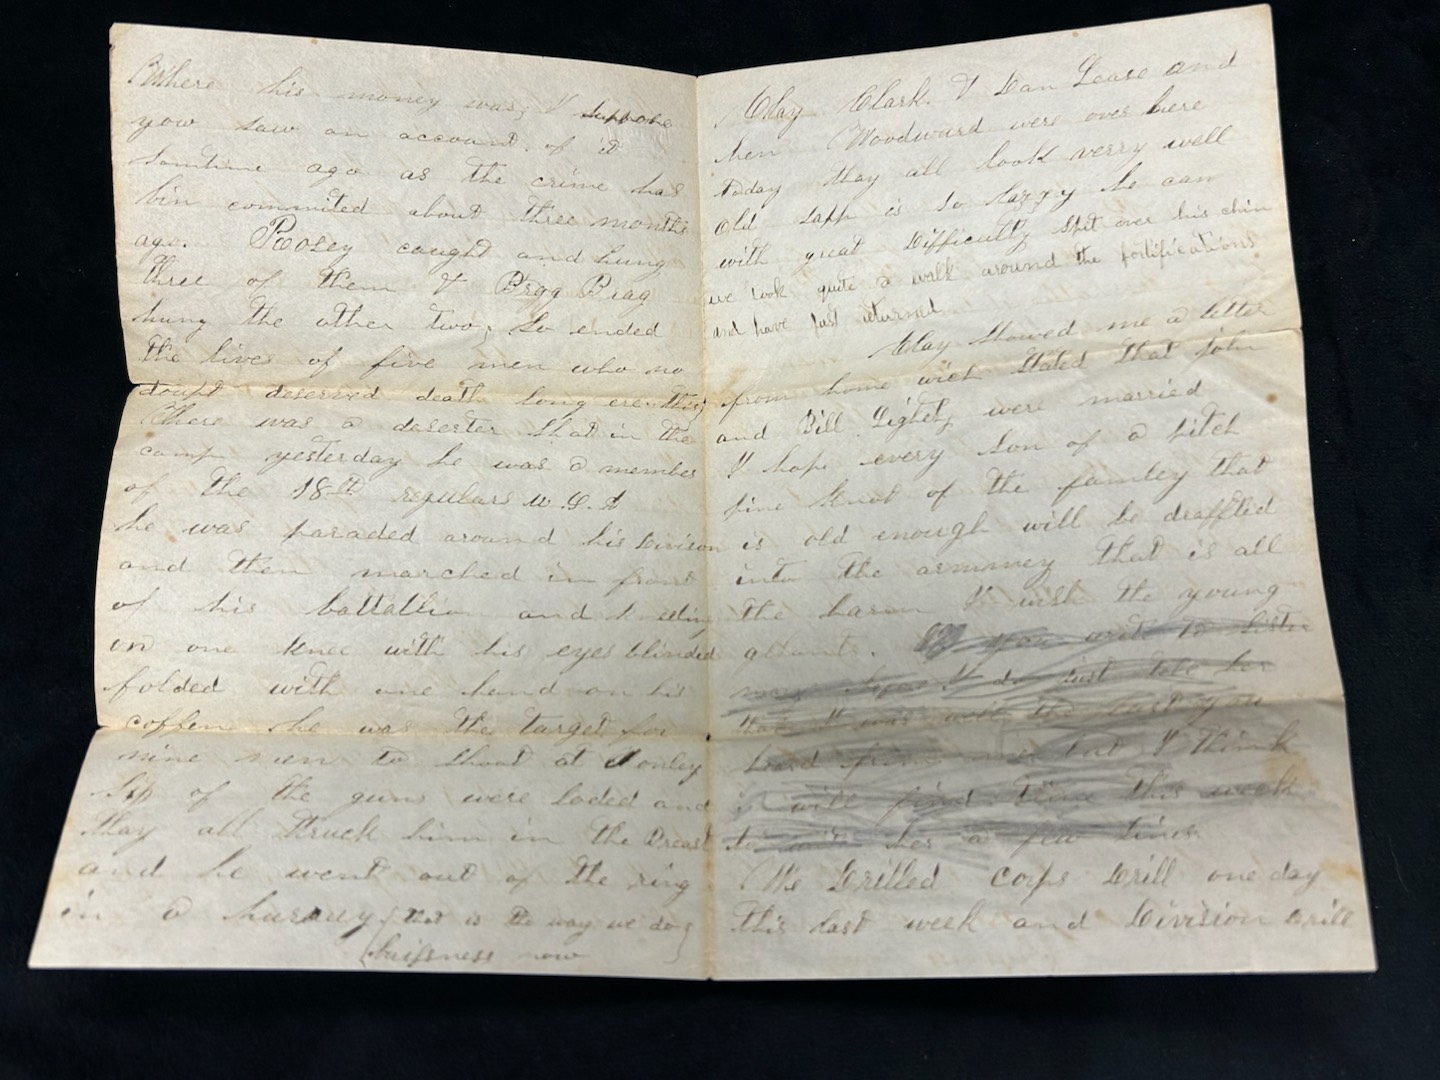 Where his money was, I suppose
you saw an account of it
somtime ago as the crime has
bin commited about three months
ago. Rosey caught and hung
three of them & Bragg Brag
hung the other two, So ended
the lives of five men who no
doupt deserved death long ere this
There was a deserter shat in the
camp yesterday he was a member
of the 18th regulars U. S. A
he was paraded around his Divison
and then marched in front
of his battallion and kneeling
on one knee with his eyes blinded
folded with one hand on his
coffen she was the target for
nine men to shoot at only
Six of the guns were loded and
thay all struck him in the Breast
and he went out of the ring
in a hurrey {that is the way we do}
{buisness now
Clay Clark & Dan Lease and
hen Woodward were over here
today thay all look verry well
old sapp is so lazzy he can
with great Difficulty Spit over his chin
we took quite a walk around the fortifications
and have just returned
Clay showed me a letter
from home wich stated that John
and Bill Lightly were married
I hope every son of a pitch
pine knot of the famley that
is old enough will be draffted
into the armmey that is all
the harm I wish the young
If you write to Sister
just tell her
that I was well the last you
heard from me but I think
I will find time this week
to write her a few lines
We Drilled corps Drill one day
this last week and Division Drill